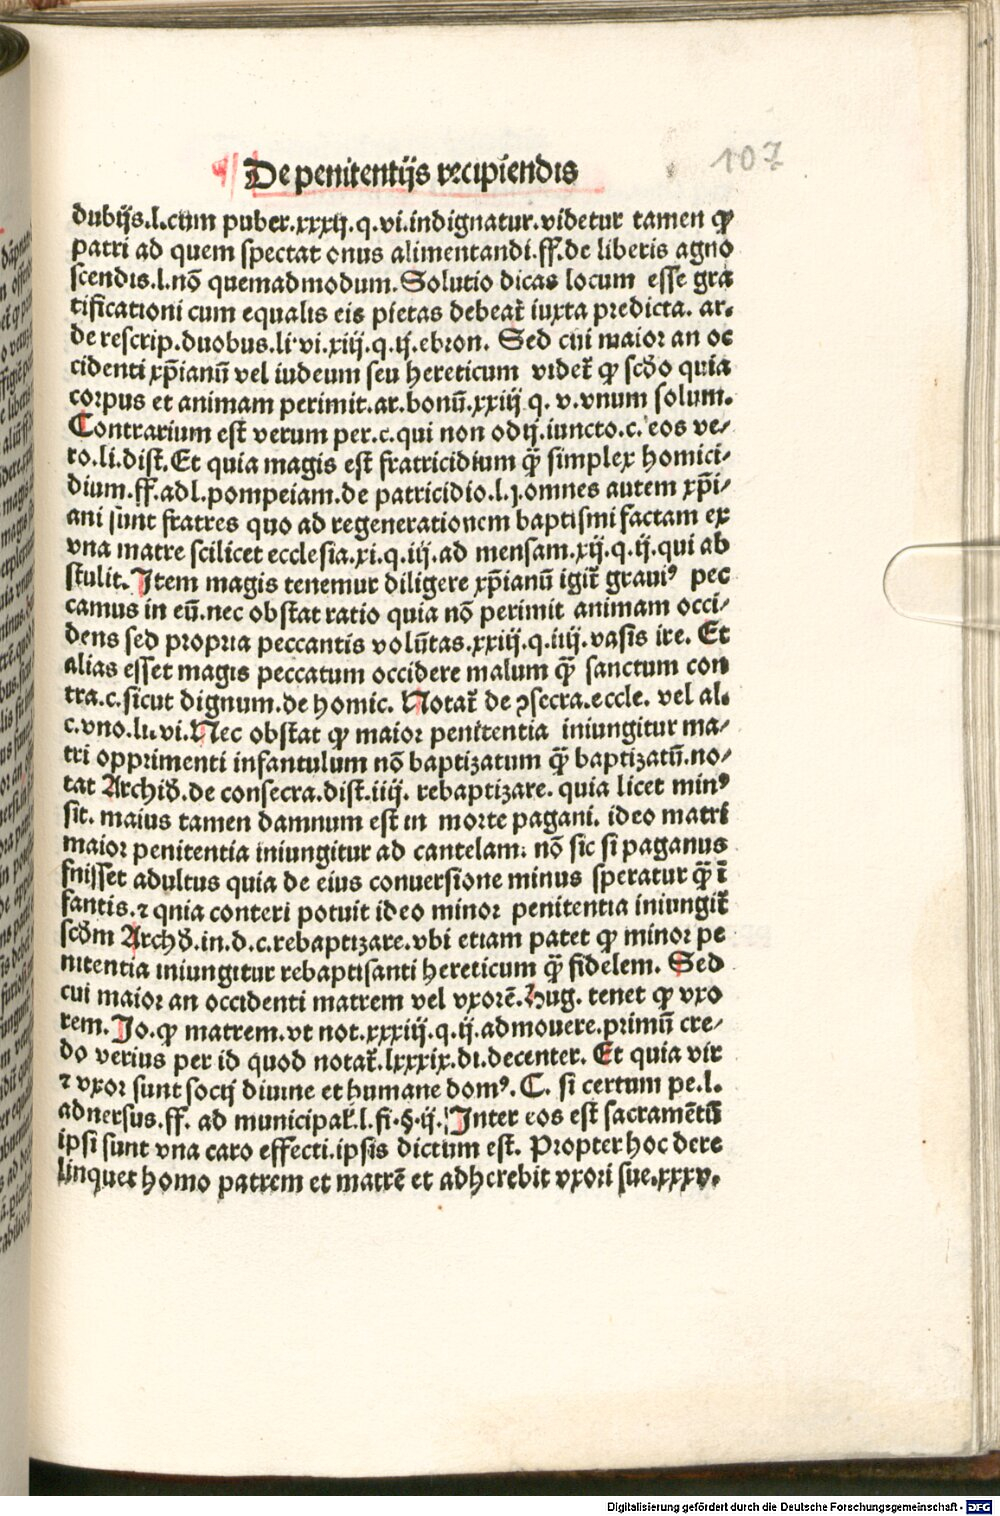 107
De penitentijs recipiendis
dubijs.l.cum puber.xxxij.q.vi.indignatur.videtur tamen ꝙ
patri ad quem spectat onus alimentandi.ff.de liberis agno
scendis.l.nō quemadmodum.Solutio dicas locum esse gra
tificationi cum equalis eis pietas debeat̉ iuxta predicta. ar.
de rescrip.duobus.li.vi.xiij.q.ij.ebron. Sed cui maior an oc
cidenti xp̄ianū vel iudeum seu hereticum videt̉ ꝙ scđo quia
corpus et animam perimit.ar.bonū.xxiij q. v.vnum solum.
Contrarium est verum per.c.qui non odij.iuncto.c.eos ve⸗
ro.li.dist.Et quia magis est fratricidium q̄ȝ simplex homici⸗
dium.ff.ad l.pompeiam.de patricidio.l.j.omnes autem xp̄i⸗
ani sunt fratres quo ad regenerationem baptismi factam ex
vna matre scilicet ecclesia.xi.q.iij.ad mensam.xij.q.ij.qui ab
stulit. Item magis tenemur diligere xp̄ianū igit̉ graui⁹ pec
camus in eū.nec obstat ratio quia nō perimit animam occi⸗
dens sed propria peccantis volūtas.xxiij.q.iiij.vasis ire. Et
alias esset magis peccatum occidere malum q̄ȝ sanctum con
tra.c.sicut dignum.de homic. Notat̉ de ꝯsecra.eccle. vel al.
c.vno.li.vi.Nec obstat ꝙ maior penitentia iniungitur ma⸗
tri opprimenti infantulum nō baptizatum q̄ȝ baptizatū.no⸗
tat Archiđ.de consecra.dist.iiij. rebaptizare. quia licet min⁹
sit. maius tamen damnum est in morte pagani. ideo matri
maior penitentia iniungitur ad cantelam. nō sic si paganus
fnisset adultus quia de eius conuersione minus speratur q̄ȝ ī
fantis.⁊ qnia conteri potuit ideo minor penitentia iniungit̉
scđm Archđ.in.d.c.rebaptizare.vbi etiam patet ꝙ minor pe
nitentia iniungitur rebaptisanti hereticum q̄ȝ fidelem. Sed
cui maior an occidenti matrem vel vxorē.Hug. tenet ꝙ vxo
rem. Jo.ꝙ matrem.vt not.xxxiij.q.ij.admouere.primū cre⸗
do verius per id quod notat̉.lxxxix.di.decenter. Et quia vir
⁊ vxor sunt socij diuine et humane dom⁹. C. si certum pe.l.
adnersus.ff. ad municipal̉.l.fi.§.ij. Inter eos est sacramētū
ipsi sunt vna caro effecti.ipsis dictum est. Propter hoc dere
linquet homo patrem et matrē et adherebit vxori sue.xxxv.
Digitalisierung gefördert durch die Deutsche Forschungsgemeinschaft - DFG